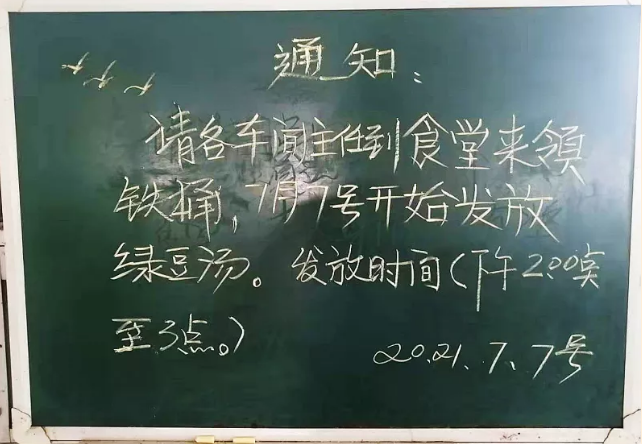 通知:
请各车间主任到食堂来领
铁桶,7月7号开始发放
绿豆汤。发放时间(下午2.00
至3点。)
2021.7.7号